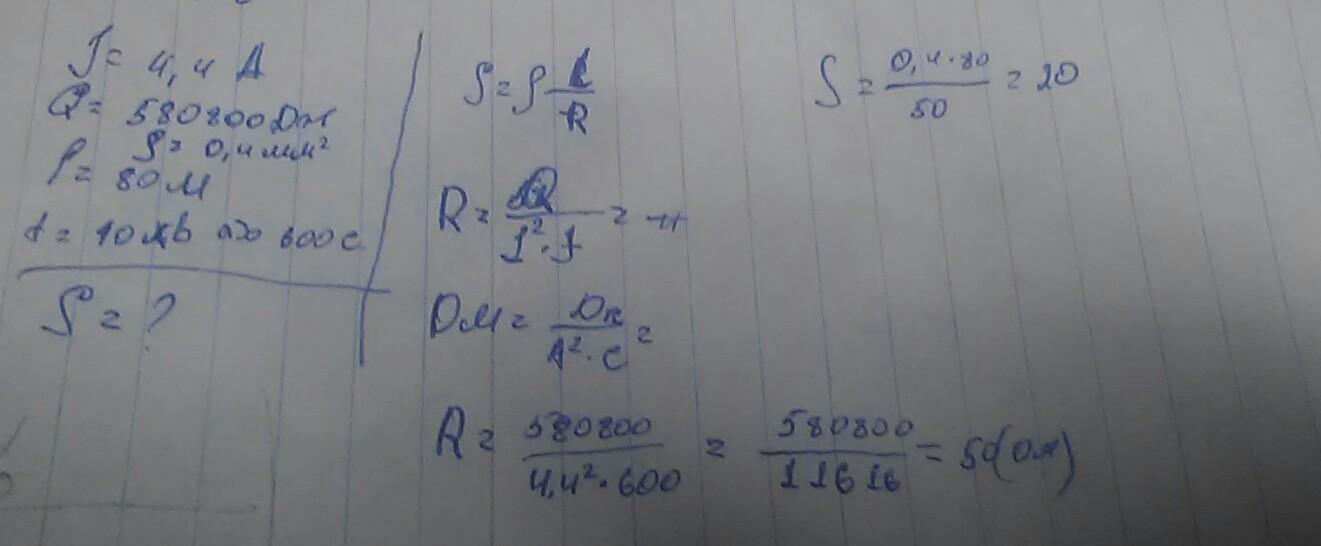 I = 4,4 A
Q = 580800 Дж
ρ = 0,4 мм²
l = 80 м
t = 10 хв = 600 c
S = ?
S = ρ l/R
R = Q/I²·t =
Ом = Дж/A²·c =
R = 580800/4,4²·600 = 580800/11616 = 50(Ом)
S = 0,4·80/50 = 20